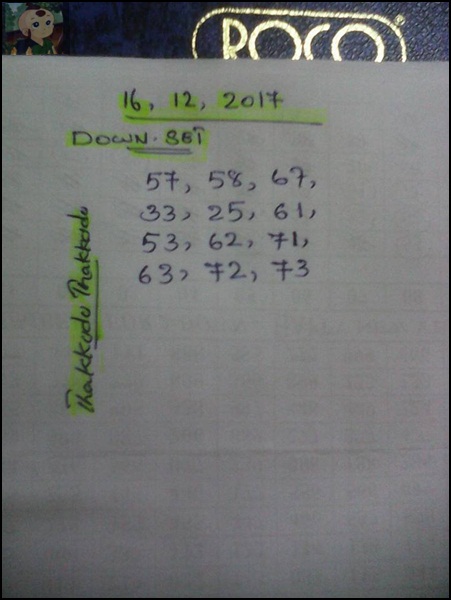 ROCO®
16, 12, 2017
DOWN. SET
57, 58, 67,
33, 25, 61,
53, 62, 71,
63, 72, 73
Thakkudu Thakkudu